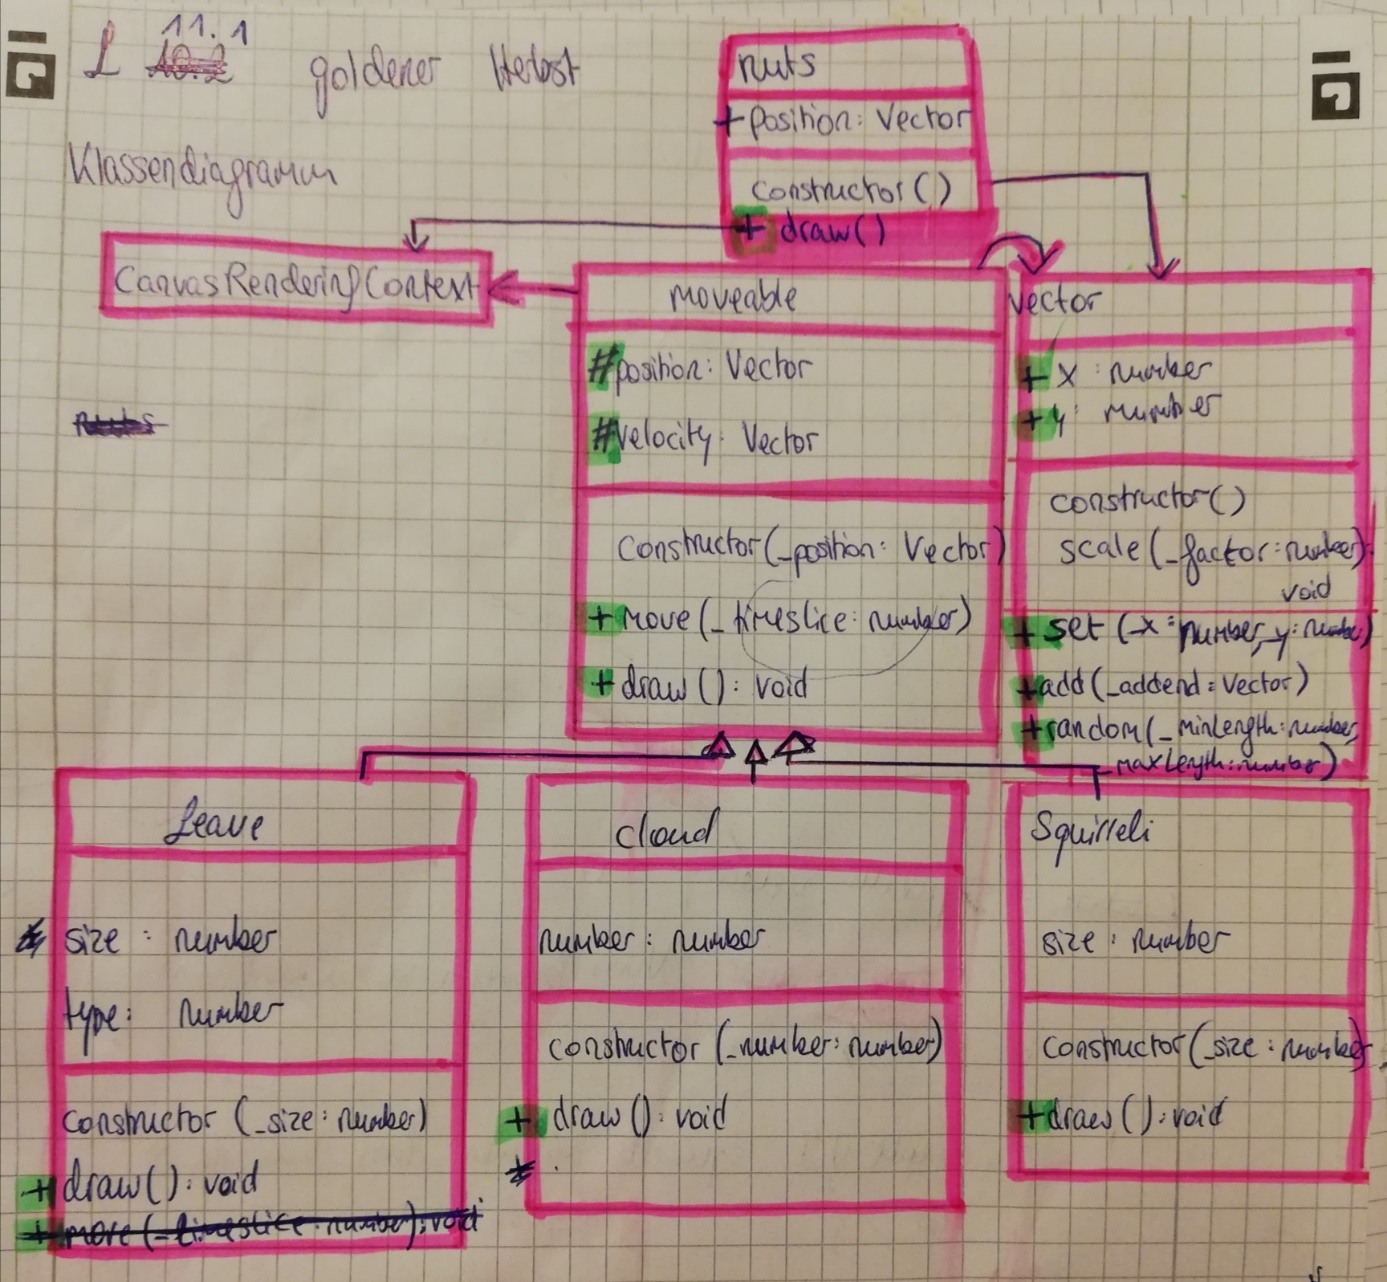 L 11.1 goldener Herbst
Klassendiagramm
nuts
+position: Vector
constructor()
+ draw()
CanvasRenderingContext
moveable
#position: Vector
#velocity: Vector
constructor(_position: Vector)
+ move(_timeslice: number)
+ draw(): void
Vector
+ x : number
+ y: number
constructor()
scale(_factor: number):
void
+ set (_x: number, _y: number)
+add(_addend: Vector)
+random(_minLength: number,
_maxLength: number)
Leave
size : number
type: number
constructor (_size: number)
+ draw(): void
+ move(_timeslice: number): void
cloud
number: number
constructor (_number: number)
+ draw(): void
Squirreli
size: number
constructor(_size: number)
+draw(): void